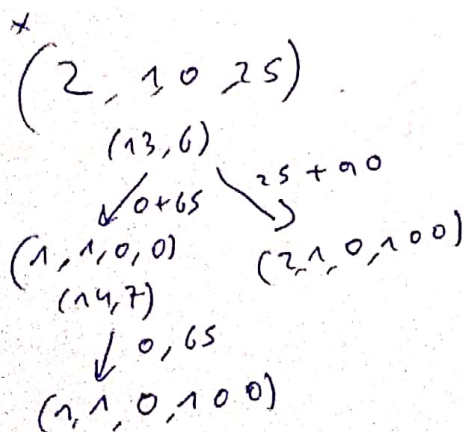 x
(2, 1 0 25)
(13,6)
0+65
25 + 90
(1,1,0,0)
(2,1,0,100)
(14,7)
0,65
(1,1,0,100)